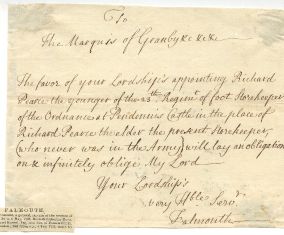 To
The Marquis of Granby &c &c &c
The favor of your Lordship's appointing Richard
Pearce the younger of the 23th Regimt. of foot Storekeeper
of the Ordnance at Pendennis Castle in the place of
Richard Pearce the elder the present Storekeeper,
(who never was in the Army) will lay an obligation
on & infinitely oblige My Lord
Your Lordship's
very Hble Servt.
Falmouth
FALMOUTH.